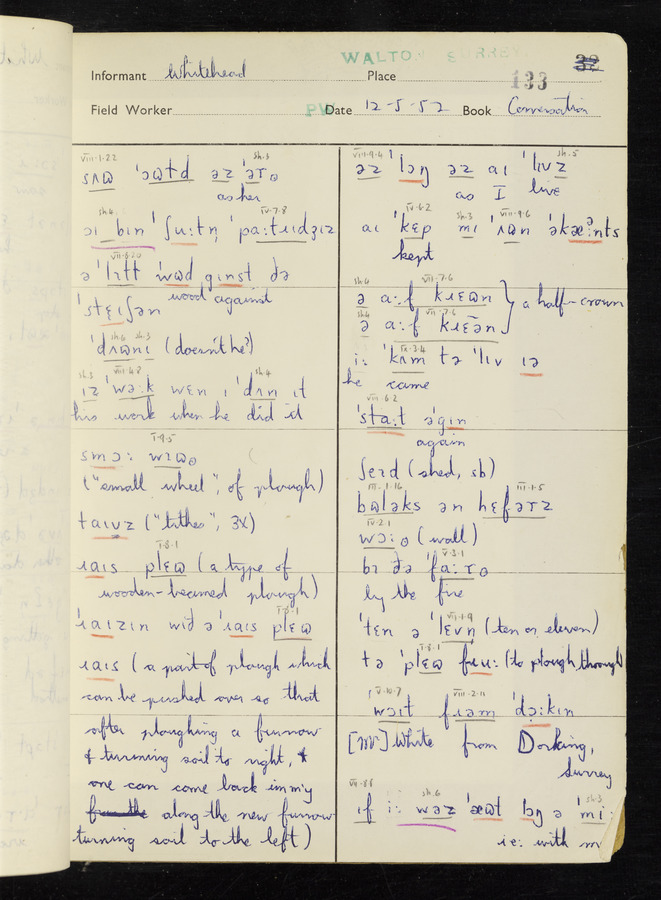 WALTO SURREY
Informant Whitehead Place
133
Field Worker PW Date 12-5-52 Book Conversation
VIII.1.22 sh.3
sʌɷ ˈɔɷtd əz ˈəɾ
as her
sh.4 IV.7.8
ɔɪ bin ˈʃu:tn̩ ˈpa:tɹɪdʒɪz
ə ˈlɪtɫ ˈwɷd gɪnst ðə
wood against
ˈstɛɪʃən
sh.6 sh.3
ˈdʌɷnɪ (doesn't he?)
sh.3 VIII.4.8 sh.4
ɪz ˈwə:k wɛn ɪ ˈdɪn ɪt
his work when he did it
I.9.5
smɔ: wɪɷ
("small wheel", of plough)
taɪvz ("tithes", 3X)
I.8.1
ɹaɪs plɛɷ (a type of
wooden-beamed plough)
I.8.1
ˈɹaɪzɪn wɪð ə ˈɹaɪs plɛɷ
ɹaɪs (a part of plough which
can be pushed over so that
after ploughing a furrow
& turning soil to right,
one can come back in my
along the new furrow
turning soil to the left)
VIII.9.4 sh.5
əz lɔŋ əz aɪ ˈlɪvz
as I live
IV.6.2 sh.3 VIII.9.6
aɪ ˈkɛp mɪ ˈʌɷn əkæᵊ:nts
kept
sh.4 VII.7.6
ə a:f kɹɛɷn } a half-crown
sh.4 VII.7.6
ə a:f kɹɛə̃n
IX.3.4
i: ˈkʌm tə ˈlɪv ɪə
he came
VII.6.2
ˈsta:t əˈgɪn
again
ʃɛɪd (shed, sb)
III.1.16 III.1.5
bɷləks ən hɛfəɾz
IV.2.1
wɔ: (wall)
V.3.1
bɪ ðə ˈfa:ɾ
by the fire
VII.1.9
ˈtɛn ə ˈlɛvn̩ (ten or eleven)
I.8.1
tə ˈplɛɷ fɹu: (to plough through)
V.10.7 VIII.2.11
wɔɪt fɹəm ˈdɔ:kɪn
[Mr] White from Dorking,
Surrey
VII.8.8 sh.6 sh.3
ɪf i: wəz ˈæɷt ɒŋ ə ˈmi:
ie: with m